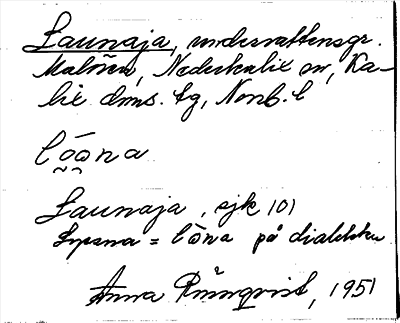 Launaja, undervattensgr.
Malören, Nederkalix sn, Ka-
lix dms. tg, Norrb. l
lo͂o͂na
Launaja, sjk 101
= lōna på dialekten
Anna Rönnqvist, 1951